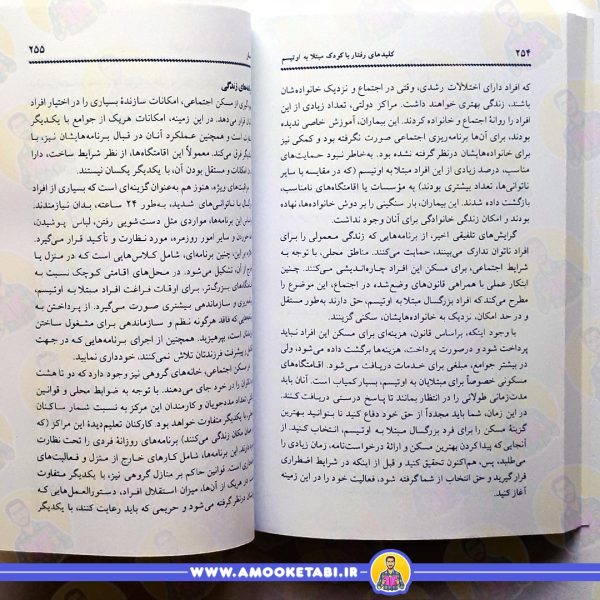 ۲۵۴
کلیدهای رفتار با کودک مبتلا به اوتیسم
که افراد دارای اختلالات رشدی، وقتی در اجتماع و نزدیک خانواده‌شان
باشند، زندگی بهتری خواهند داشت. مراکز دولتی، تعداد زیادی از این
افراد را روانهٔ اجتماع و خانواده کردند. این بیماران، آموزش خاصی ندیده
بودند، برای آن‌ها برنامه‌ریزی اجتماعی صورت نگرفته بود و کمکی نیز
برای خانواده‌هایشان درنظر گرفته نشده بود. به‌خاطر نبود حمایت‌های
مناسب، درصد زیادی از این افراد مبتلا به اوتیسم (که در مقایسه با سایر
ناتوانی‌ها، تعداد بیشتری بودند) به مؤسسات یا اقامتگاه‌های نامناسب،
بازگشت داده شدند. این بیماران، بار سنگینی را بر دوش خانواده‌ها، نهاده
و امکان زندگی خانوادگی برای آنان وجود نداشت.
گرایش‌های تلفیقی اخیر، از برنامه‌هایی که زندگی معمولی را برای
افراد ناتوان تدارک می‌بینند، حمایت می‌کنند. مناطق محلی، با توجه به
شرایط اجتماعی، برای مسکن این افراد چاره‌اندیشی می‌کنند. چنین
ابتکار عملی با همراهی قانون‌های وضع‌شده در اجتماع، این موضوع را
مطرح می‌کند که افراد بزرگسال مبتلا به اوتیسم، حق دارند به‌طور مستقل
و در حد امکان، نزدیک به خانواده‌هایشان، سکنی گزینند.
با وجود اینکه، براساس قانون، هزینه‌ای برای مسکن این افراد نباید
پرداخت شود و درصورت پرداخت، هزینه‌ها برگشت داده می‌شود، ولی
در بیشتر جوامع، مبلغی برای خدمات دریافت می‌شود. اقامتگاه‌های
مسکونی خصوصاً برای مبتلایان به اوتیسم، بسیار کمیاب است. آنان باید
مدت‌زمانی طولانی را در انتظار بمانند تا پاسخ درستی دریافت کنند.
در این زمان، شما باید مجدداً از حق خود دفاع کنید تا بتوانید بهترین
گزینهٔ مسکن را برای فرد بزرگسال مبتلا به اوتیسم، انتخاب کنید. از
آنجایی که پیدا کردن بهترین مسکن و ارائهٔ درخواست‌نامه، زمان زیادی را
می‌طلبد، پس، هم‌اکنون تحقیق کنید و قبل از اینکه در شرایط اضطراری
قرار گیرید و حق انتخاب از شما گرفته شود، فعالیت خود را در این زمینه
آغاز کنید.
۲۵۵
زندگی
از مسکن اجتماعی، امکانات سازندهٔ بسیاری را در اختیار افراد
قرار می‌دهد. در این زمینه، امکانات هریک از جوامع با یکدیگر
است و همچنین عملکرد آنان در قبال برنامه‌هایشان نیز، با
فرق می‌کند. معمولاً این اقامتگاه‌ها، از نظر شرایط ساخت، دارا
امکانات و مستقل بودن آن، با یکدیگر یکسان نیستند.
ویژه، هنوز هم به‌عنوان گزینه‌ای است که بسیاری از افراد
با ناتوانی‌های شدید، به‌طور ۲۴ ساعته، بدان نیازمندند.
این برنامه‌ها، مواردی مثل دست‌شویی رفتن، لباس پوشیدن،
و سایر امور روزمره، مورد نظارت و تأکید قرار می‌گیرد.
این، چنین برنامه‌ای، شامل کلاس‌هایی است که در منزل یا
از آن، تشکیل می‌شود. در محل‌های اقامتی کوچک نسبت به
بزرگ‌تر، برای اوقات فراغت افراد مبتلا به اوتیسم،
و سازماندهی بیشتری صورت می‌گیرد. از پرداختن به
که فاقد هرگونه نظم و سازماندهی برای مشغول ساختن
است، بپرهیزید. همچنین از اجرای برنامه‌هایی که در جهت
پیشرفت فرزندتان تلاش نمی‌کنند، خودداری نمایید.
اجتماعی، خانه‌های گروهی نیز وجود دارد که دو تا هشت
را در خود جای می‌دهند. با توجه به ضوابط محلی و قوانین
تعداد مددجویان و کارمندان این مرکز به نسبت شمار ساکنان
با یکدیگر متفاوت خواهد بود. کارکنان تعلیم‌دیدهٔ این مراکز (که
همان مکان زندگی می‌کنند) برنامه‌های روزانهٔ فردی را تحت نظارت
این برنامه‌ها، شامل کارهای خارج از منزل و فعالیت‌های
است. قوانین حاکم بر منازل گروهی نیز، با یکدیگر متفاوت
در هریک از آن‌ها، میزان استقلال افراد، دستورالعمل‌هایی که
درنظر گرفته می‌شود و حریمی که باید رعایت کنند، با یکدیگر
WWW.AMOOKETABI.IR